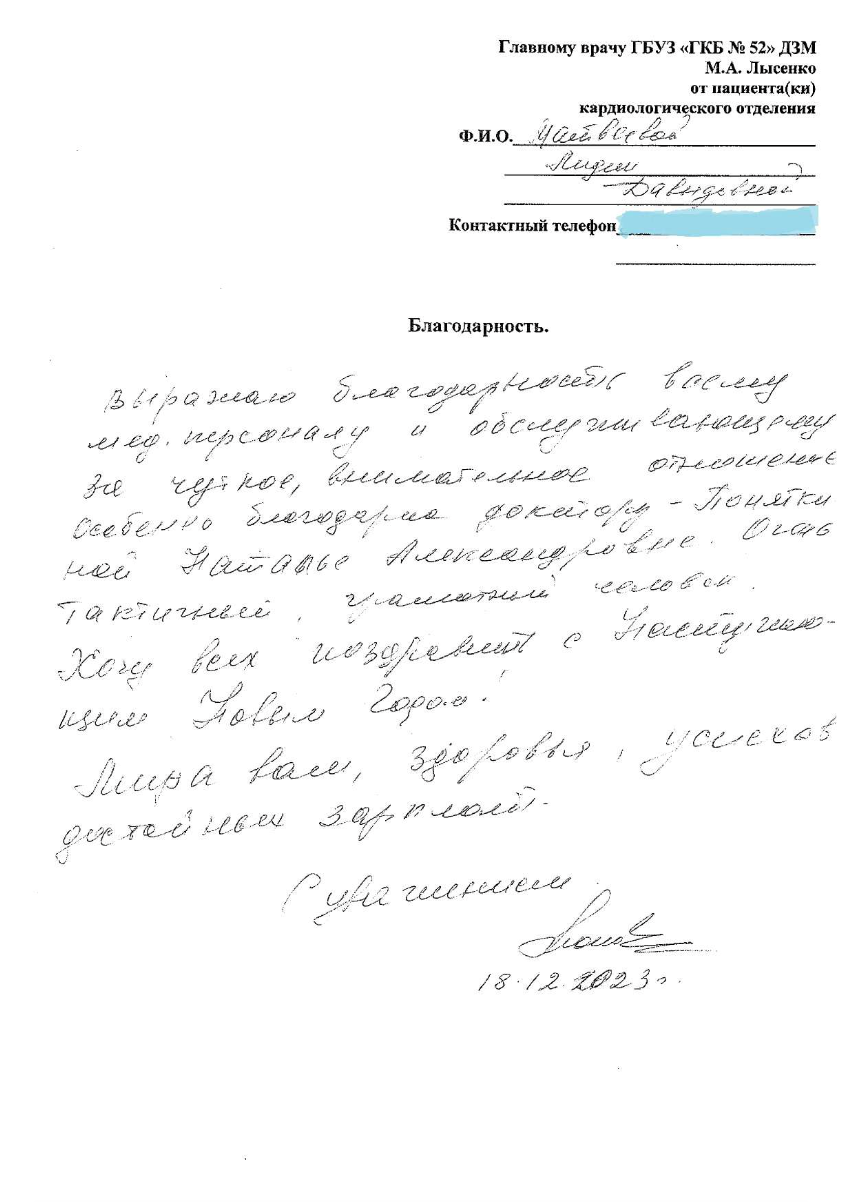 Главному врачу ГБУЗ «ГКБ № 52» ДЗМ
М.А. Лысенко
от пациента(ки)
кардиологического отделения
Ф.И.О. Матвеевой
Лидии
Давидовной
Контактный телефон
Благодарность.
Выражаю благодарность всему
мед. персоналу и обслуживающему
за чуткое, внимательное отношение
Особенно благодарна доктору - Понятки
ной Наталье Александровне. Очень
тактичный, грамотный человек.
Хочу всех поздравить с Наступаю-
щим Новым Годом!
Мира вам, здоровья, успехов
достойных зарплат.
С уважением
18.12.2023г.